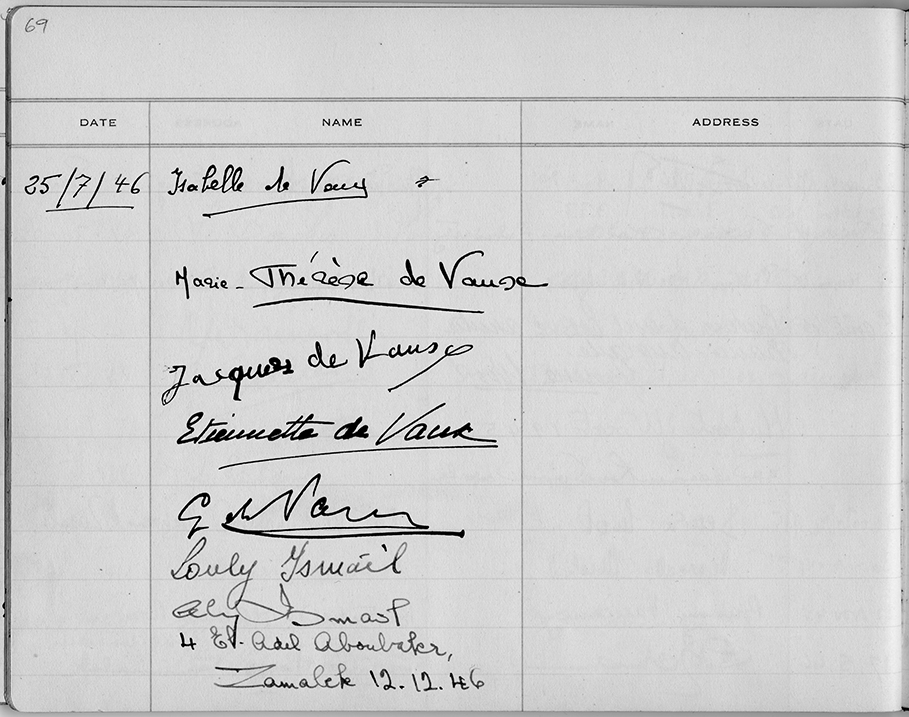 69
DATE NAME ADDRESS
25/7/46 Isabelle de Vaux
Marie-Thérèse de Vaux
Jacques de Vaux
Etiennette de Vaux
G de Vaux
Louly Ismaïl
Aly Ismail
4 El-Adel Aboubaker,
Zamalek 12.12.46